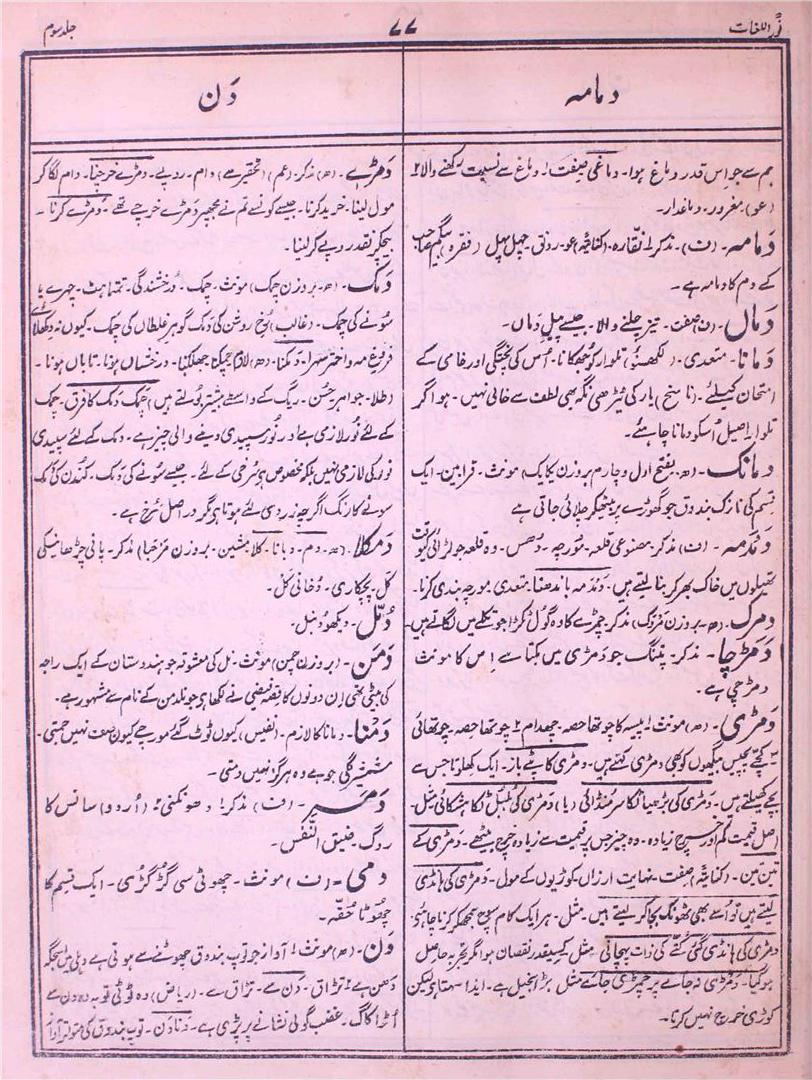 نور اللغات
۷۷
جلد سوم
دمامہ
دَن
ہم سے جو اِس قدر دماغ ہوا۔ دماغی صفت ۱ دماغ سے نسبت رکھنے والا ۲
(عو) مغرور۔ دماغدار۔
دَمامہ۔ (ف) مذکر ۱ نقّارہ۔ (کنایۃً) عو۔ رونق۔ چہل پہل (فقرہ) بیگم صاحب
کے دم کا دمامہ ہے۔
دَماں۔ (ف) صفت۔ تیز چلنے والا۔ جیسے پیلِ دماں۔
دَمانا۔ متعدی۔ (لکھنؤ) تلوار کو جھکانا۔ اُس کی پختگی اور خامی کے
امتحان کیلئے۔ (ناسخ) یار کی ٹیڑھی نگہ بھی لطف سے خالی نہیں۔ ہو اگر
تلوار اصیل اُسکو دمانا چاہئے۔
دمانک۔ (ھ۔ بفتح اول و چارم بروزن یکایک) مونث۔ قرابین۔ ایک
قسم کی نازک بندوق جو گھوڑے پر بیٹھکر چلائی جاتی ہے
دَمدمہ۔ (ف) مذکر۔ مصنوعی قلعہ۔ مورچہ۔ دھس۔ وہ قلعہ جو لڑائی کیوقت
تھیلوں میں خاک بھر کر بنا لیتے ہیں۔ دَمدمہ باندھنا۔ متعدی مورچہ بندی کرنا۔
دمرک۔ (ھ۔ بروزن مَزدک) مذکر۔ چمڑے کا وہ گول ٹکڑا جو تکلے میں لگاتے ہیں
دَمڑچا۔ مذکر۔ پتنگ جو دمڑی میں بکتا ہے اس کا مونث
دمڑچی ہے۔
دَمڑی۔ (ھ) مونث ۱ پیسہ کا چوتھا حصہ۔ چھدام ۲ چوتھا حصہ۔ چوتھائی
۳ کچے پچیس بیگھوں کو بھی دمڑی کہتے ہیں۔ دمڑی کا پٹے باز۔ ایک کھلونا جس سے
بچے کھیلتے ہیں۔ دمڑی کی بڑھیا ٹکا سر منڈائی (یا) دمڑی کی بُلبُل ٹکا ہشکائی مثل۔
اصل قیمت کم اور خرچ زیادہ۔ وہ چیز جس پر قیمت سے زیادہ خرچ بیٹھے۔ دمڑی کے
تین تین۔ (کنایۃً) صفت۔ نہایت ارزاں کوڑیوں کے مول۔ دمڑی کی ہانڈی
لیتے ہیں تو اُسے بھی ٹھونک بجا کر لیتے ہیں۔ مثل۔ ہر ایک کام سوچ سمجھکر کرنا چاہئے
دمڑی کی ہانڈی گئی کتّے کی ذات پہچانی مثل کسیقدر نقصان ہوا مگر تجربہ حاصل
ہو گیا۔ دمڑی نہ جائے پر چمڑی جائے مثل بڑا بخیل ہے۔ ایذا سہتا ہے لیکن
کوڑی خرچ نہیں کرتا۔
دَمڑے۔ (ھ) مذکر۔ (عم) (تحقیر سے) دام۔ روپے۔ دمڑے خرچنا۔ دام لگا کر
مول لینا۔ خرید کرنا۔ جیسے کونسے تم نے مجھپر دمڑے خرچے تھے۔ دمڑے کرنا۔
بیچکر نقد روپے کر لینا۔
دَمک۔ (ھ۔ بروزن چمک) مونث۔ چمک۔ درخشندگی۔ تمتماہٹ۔ چہرے یا
سونے کی چمک۔ (غالب) رُخِ روشن کی دمک گوہرِ غلطاں کی چمک۔ کیوں نہ دکھلائے
فروغِ مہ و اختر سہرا۔ دمکنا۔ (ھ) لازم چمکنا جھلکنا۔ درخشاں ہونا۔ تاباں ہونا۔
(طلا۔ جواہر۔ حسن۔ رنگ کے واسطے بیشتر بولتے ہیں) چمک دمک کا فرق۔ چمک
کے لئے نور لازمی ہے اور نور سپیدی دینے والی چیز ہے۔ دمک کے لئے سپیدی
نور کی لازمی نہیں بلکہ مخصوص ہے سُرخی کے لئے۔ جیسے سونے کی دمک۔ کندن کی دمک
سونے کا رنگ اگرچہ زردی لئے ہوتا ہے مگر در اصل سُرخ ہے۔
دَمکلا۔ (ھ۔ دم۔ دبانا۔ کلا مشین۔ بروزن مرحبا) مذکر۔ پانی چڑھانیکی
کل۔ پچکاری۔ دُخانی کَل۔
دُمّل۔ دیکھو دنبل۔
دَمَن۔ (بروزن چمن) مونث۔ نل کی معشوقہ جو ہندوستان کے ایک راجہ
کی بیٹی تھی اِن دونوں کا قصہ فیضی نے لکھا ہے جو نلدمن کے نام سے مشہور ہے۔
دَمنا۔ دمانا کا لازم۔ (نفیس) کیوں ٹوٹ گئے مورچے کیوں صف نہیں جمتی۔
شمشیر کی جو ہے وہ ہرگز نہیں دمتی۔
دَمہ۔ (ف) مذکر ۱ دھونکنی ۲ (اُردو) سانس کا
روگ۔ ضیق النَفَس۔
دمی۔ (ف) مونث۔ چھوٹی سی گڑگڑی۔ ایک قسم کا
چھوٹا حُقّہ۔
دَن۔ (ھ) مونث ۱ آواز جو توپ بندوق چھوٹنے سے ہوتی ہے دہلی میں اسجگہ
دھن ہے ۲ تڑاق۔ دَن سے۔ تڑاق سے۔ (ریاض) وہ ٹوٹی توبہ وہ دن سے
اُڑا کاگ۔ غضب گولی نشانے پر پڑی ہے۔ دَنادَن۔ توپ بندوق کی متواتر آواز